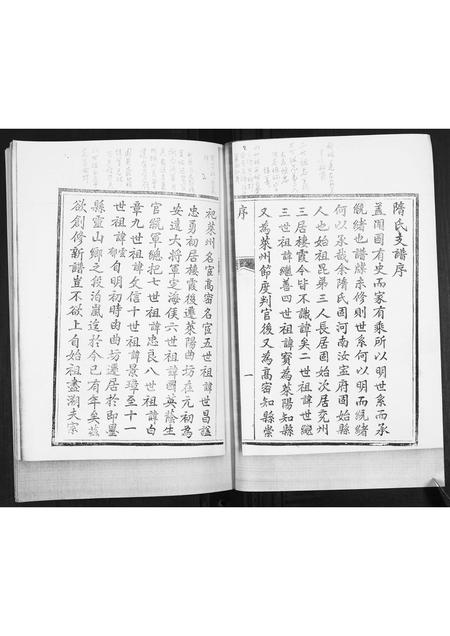 隋氏支譜序
蓋聞國有史而家有乘所以明世系而承
統緒也譜牒未修則世系何以明而統緒
何以承哉余隋氏固河南汝寧府固始縣
人也始祖昆弟三人長居固始次居兗州
三居棲霞今皆不識諱矣二世祖諱世繼
三世祖諱繼善四世祖諱寶為萊陽知縣
又為萊州節度判官後又為高密知縣崇
序
一
祀萊州名宦高密名宦五世祖諱世昌謚
忠勇初居棲霞後遷萊陽曲坊在元初為
安遠大將軍定海侯六世祖諱國英蔭生
官綂軍總把七世祖諱忠良八世祖諱白
章九世祖諱文信十世祖諱景璋至十一
世祖諱雲自明初時由曲坊遷居於即墨
縣靈山鄉之段泊嵐迄於今已有年矣茲
欲創修新譜豈不欲上自始祖盡溯夫宗